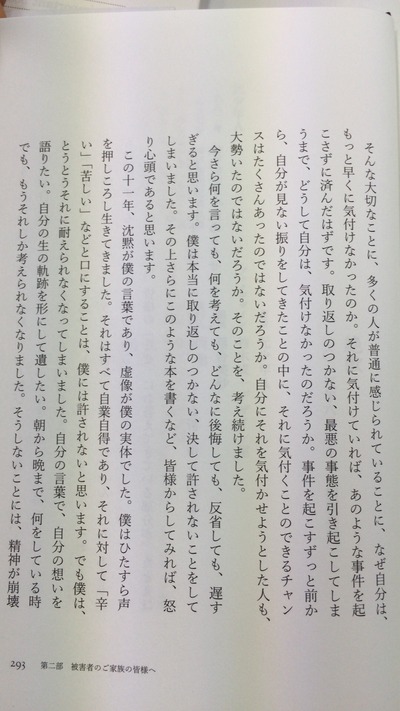 そんな大切なことに、多くの人が普通に感じられていることに、なぜ自分は、
もっと早くに気付けなかったのか。それに気付けていれば、あのような事件を起
こさずに済んだはずです。取り返しのつかない、最悪の事態を引き起こしてしま
うまで、どうして自分は、気付けなかったのだろうか。事件を起こすずっと前か
ら、自分が見ない振りをしてきたことの中に、それに気付くことのできるチャン
スはたくさんあったのではないだろうか。自分にそれを気付かせようとした人も、
大勢いたのではないだろうか。そのことを、考え続けました。
今さら何を言っても、何を考えても、どんなに後悔しても、反省しても、遅す
ぎると思います。僕は本当に取り返しのつかない、決して許されないことをして
しまいました。その上さらにこのような本を書くなど、皆様からしてみれば、怒
り心頭であると思います。
この十一年、沈黙が僕の言葉であり、虚像が僕の実体でした。僕はひたすら声
を押しころし生きてきました。それはすべて自業自得であり、それに対して「辛
い」「苦しい」などと口にすることは、僕には許されないと思います。でも僕は、
とうとうそれに耐えられなくなってしまいました。自分の言葉で、自分の想いを
語りたい。自分の生の軌跡を形にして遺したい。朝から晩まで、何をしている時
でも、もうそれしか考えられなくなりました。そうしないことには、精神が崩壊
293 第二部 被害者のご家族の皆様へ